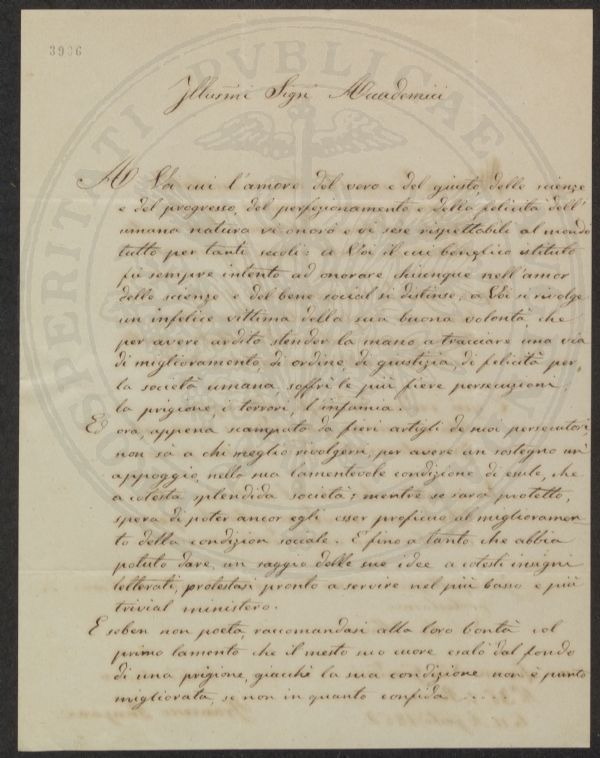 3906
Illusmi Sigri Accademici
A Voi cui l'amore del vero e del giusto, delle scienze
e del progresso, del perfezionamento e della felicità dell'
umana natura vi onorò e vi rese rispettabili al mondo
tutto per tanti secoli: a Voi il cui benefico istituto
fù sempre intento ad onorare chiunque nell'amor
delle scienze e del bene social si distinse, a Voi si rivolge
un infelice vittima della sua buona volontà, che
per avere ardito stender la mano a tracciare una via
di miglioramento, di ordine, di giustizia, di felicità per
la società umana soffrì le più fiere persecuzioni,
la prigione, i terrori, l'infamia.
Ed ora, appena scampato da fieri artigli de suoi persecutori
non sà a chi meglio rivolgersi, per avere un sostegno un'
appoggio, nella sua lamentevole condizione di esule, che
a cotesta splendida società; mentre se sarà protetto,
spera di poter ancor egli esser proficuo al miglioramen
to della condizion sociale. E fino a tanto, che abbia
potuto dare, un saggio delle sue idee a cotesti insigni
letterati, protestasi pronto a servire nel più basso e più
trivial ministero.
E seben non poeta, raccomandasi alla loro bontà col
primo lamento che il mesto suo cuore esalò dal fondo
di una prigione, giacchè la sua condizione non è punto
migliorata, se non in quanto confida ....
PROSPERITATI PVBLICAE